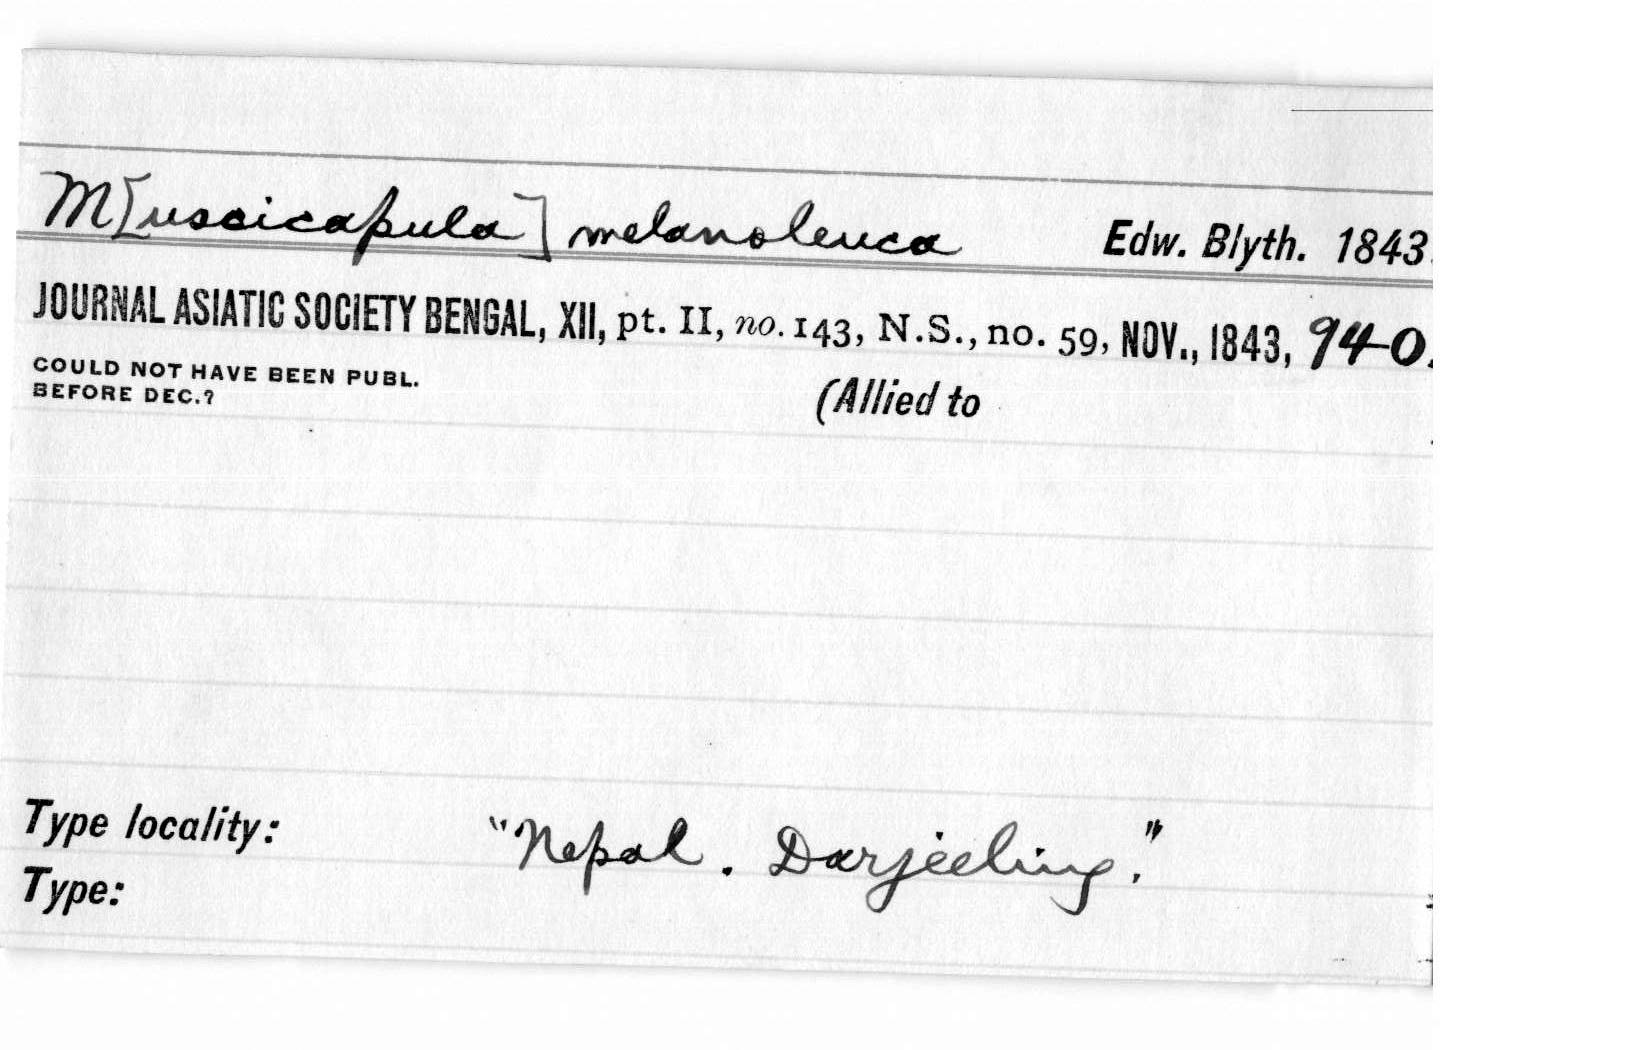 M[uscicapula] melanoleuca Edw. Blyth. 1843.
JOURNAL ASIATIC SOCIETY BENGAL, XII, pt. II, no. 143, N.S., no. 59, NOV., 1843, 940.
COULD NOT HAVE BEEN PUBL.
BEFORE DEC.?
(Allied to
Type locality: "Nepal. Darjeeling."
Type: